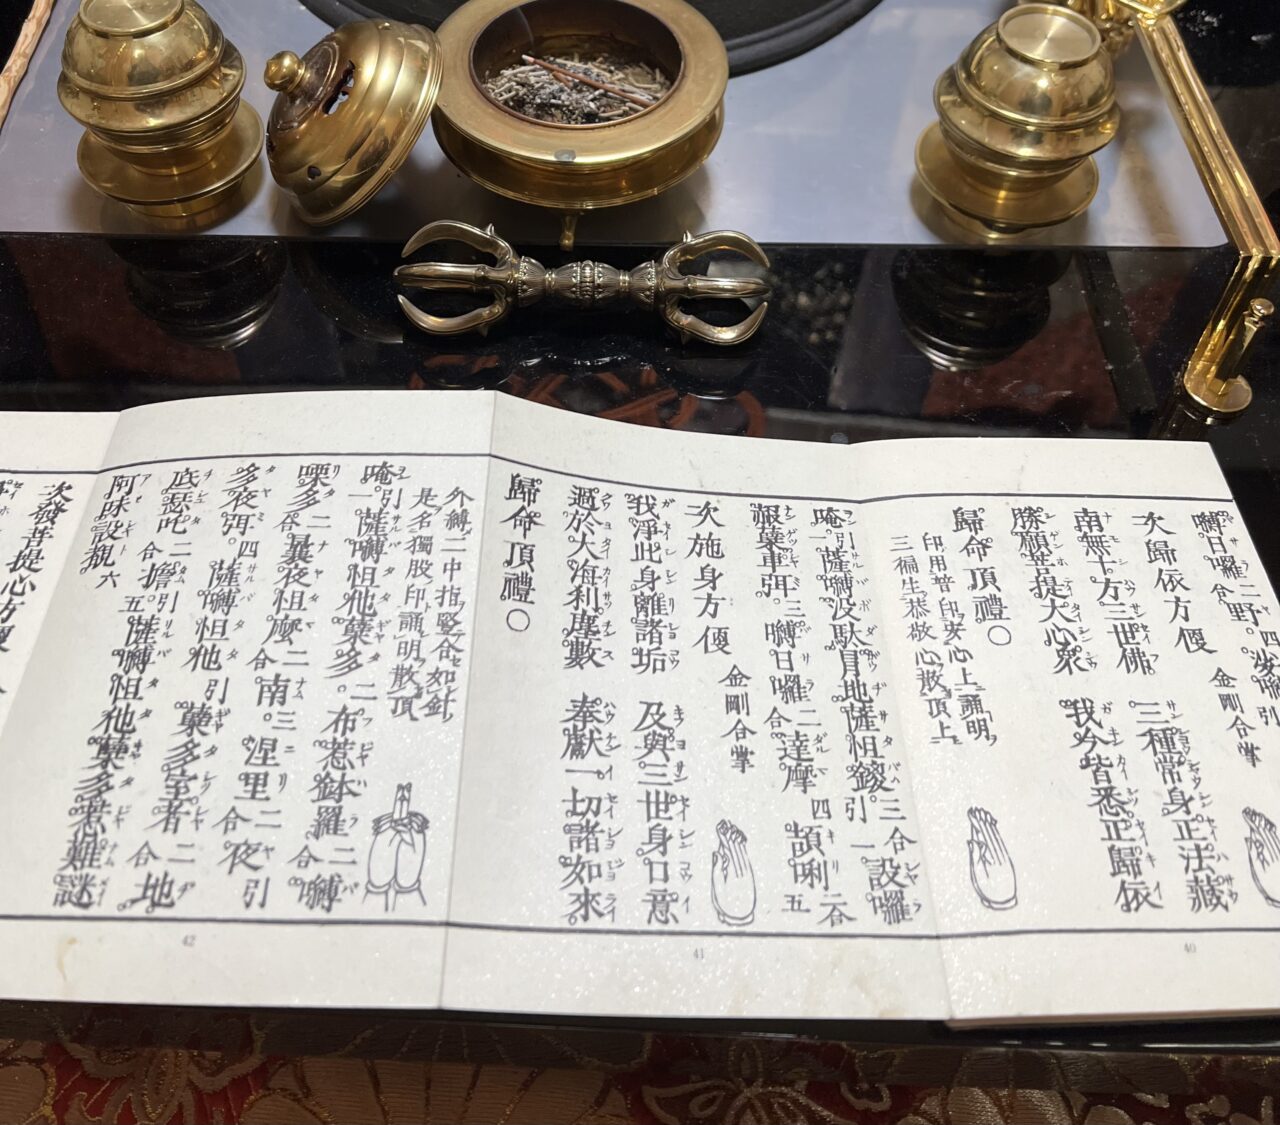 嚩日囉二合野。四娑嚩引
次歸依方便 金剛合掌
南無十方三世佛 三種常身正法藏
勝願菩提大心衆 我今皆悉正歸依
歸命頂禮〇
印用普印安心上誦明
三徧生恭敬心散頂上
唵引一薩嚩没馱月地薩怛鑁引三合一設囉
赧蘖車弭三嚩日囉二合達摩四頡唎二合五
次施身方便 金剛合掌
我淨此身離諸垢 及與三世身口意
過於大海刹塵數 奉獻一切諸如來
歸命頂禮〇
外縛二中指竪合如針
是名獨股印誦明散頂
唵引一薩嚩怛他蘖多二布惹鉢羅二合嚩
㗚多二合曩夜怛麼二合南三涅里二合夜引
多夜弭四薩嚩怛他引蘖多室者二合地
底瑟吒二合擔引五薩嚩怛他蘖多惹難謎
阿味設覩六
次發菩提心方便
40
41
42